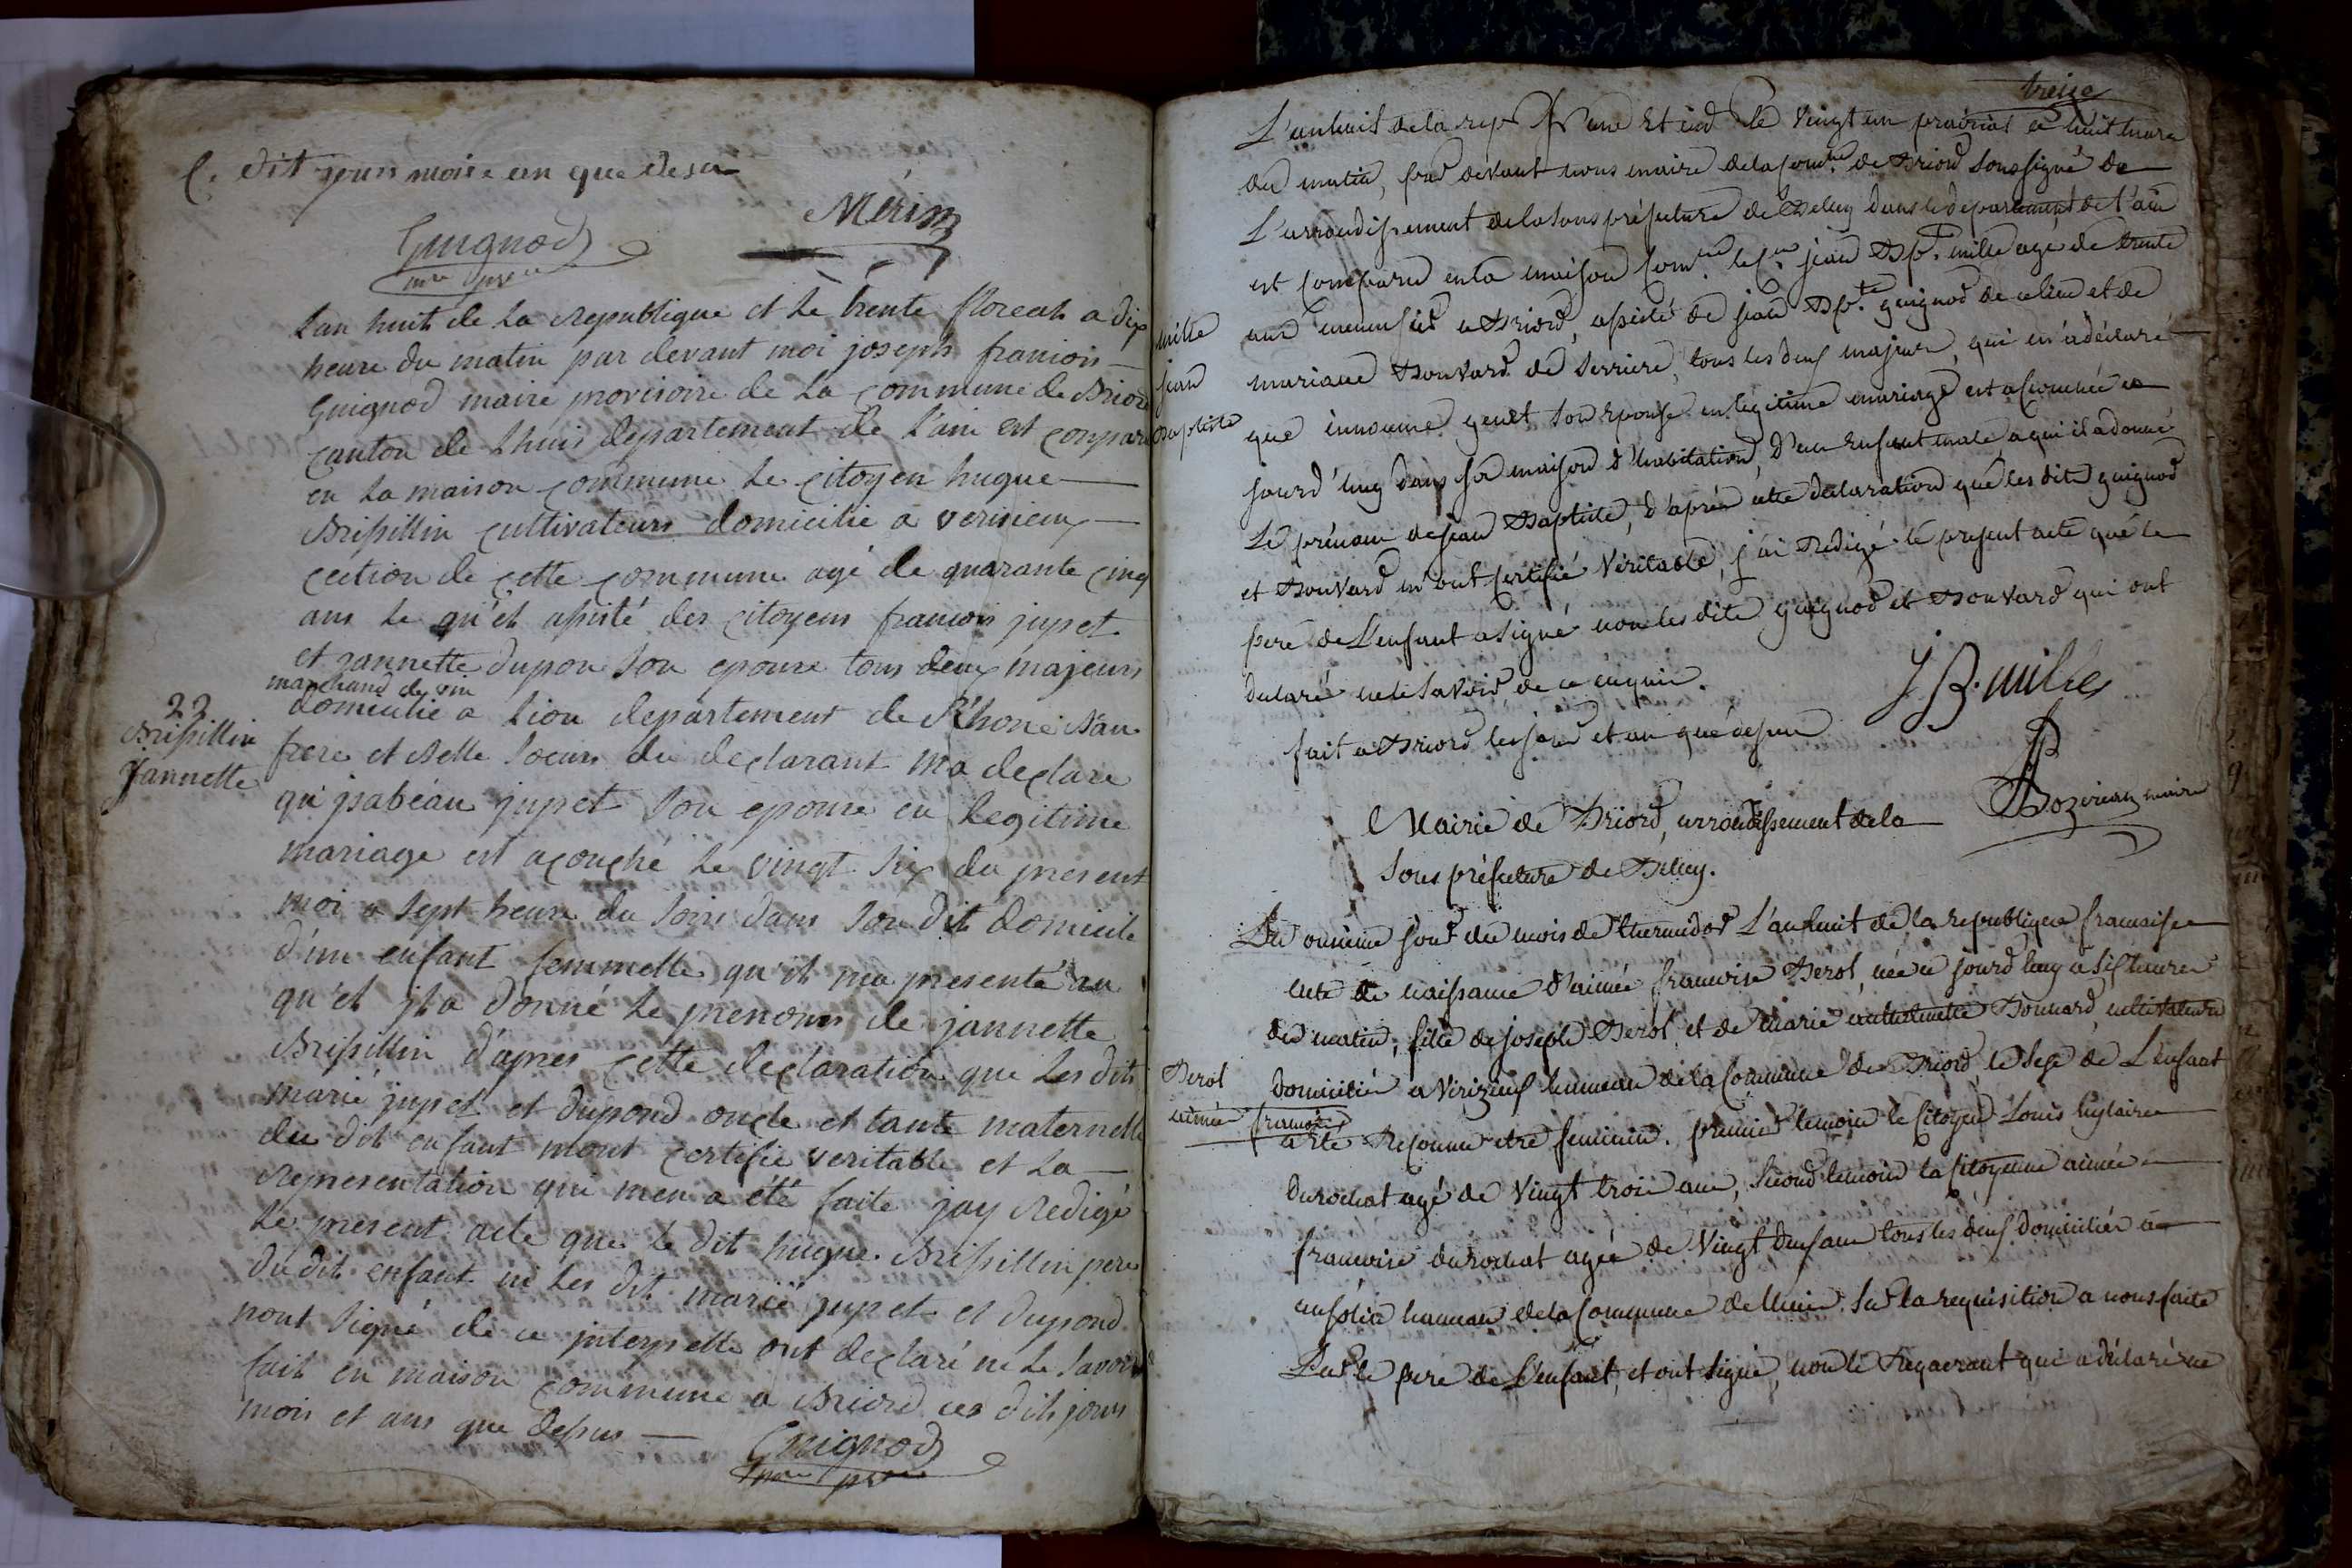 C. dit jours mois e an que desu
Mérin
Guignod
mre pre
Lan huit de la republique et le trente floreal a dix
heure du matin par devant moi joseph franiois
Guignod maire provisoire de la commune de Briord
canton de Lhuis departement de l'ain est conparu
en la maison commune le citoyen hugue
Brissillin cultivateurs domicilié a verisieux
cection de cette commune agé de quarante cinq
ans le qu'el assisté des citoyens francois jupet
et jannette dupon son epouse tous deux majeurs
marchand de vin
domicilié a Lion departement de Rhone Bau
22
Brissillin
Jannette
frere et Belle soeurs du declarant ma declaré
qu'jsabéau jupet son epouse en legitime
mariage est acouché le vingt six du present
moi a sept heure du soire dans son dit domicile
d'un enfant femmelle qu'il ma presenté au
qu'el jl a donné le prenoms de jannette
Brissillin d'apres cette declaration que les dits
marié jupet et dupond oncle et tante maternelle
du dit enfant mont certifié veritable et la
representation qui men a été faite jay redigé
le present acte que le dit hugue Brissillin pere
du dit enfant ni les dit marié jupet et dupond
nont signé de ce jnterpellé ont declaré ne le savoir
fait en maison commune a Briord ces dits jours
mois et ans que dessus
Guignod
mre pre
treize
L'an huit de la rep. f. une et ind. le vingt un prairial a huit heure
du matin, par devant nous maire de la com.ne de Briord soussigné de
L'arrondissement de la sous préfecture de Belley dans le departement de l'ain
est comparu en la maison com.ne le c.en jean Bp.te mille agé de trente
mille
jean
Baptiste
ans a Briord, assisté de jean Bp.te guignod de ce lieu et de
mariane Bonvard de Serriere, tous les deux majeurs, qui m'a déclaré
que genet son epouse en légitime mariage est acouchée ce
jourd'huy dans sa maison d'habitation, d'un enfant male, a qui il a donné
Le prénom de jean Baptiste, d'après cette declaration que les dits guignod
et Bonvard m'ont certifié véritable, j'ai redigé le present acte que le
pere de L'enfant a signé non les dits guignod et Bonvard qui ont
declaré ne le savoir de ce enquis.
fait a Briord les jour et an que dessus
J B. mille
Bozerian maire
Mairie de Briord, arrondissement de la
sous préfecture de Belley.
Du onsieme jour du mois de thermidor L'an huit de la republique francaise
acte de naissance d'aimée francoise Berot, née ce jourd'huy a six heures
du matin, fille de joseph Berot, et de marie Bonnard, cultivateurs
Berot
aimée francoise
domiciliés a Virizieux hammeau de la commune de Briord le sexe de L'enfant
a été reconnu etre feminin. premier temoin le citoyen Louis hylaire
durochat agé de vingt trois ans, second temoin la citoyenne aimée
francoise durochat agée de vingt deux ans tous les deux domiciliés a
hameau de la commune de Lhuis. sur la requisition a nous faite
Par le pere de L'enfant, et ont signé, non le Requerant qui a déclaré ne